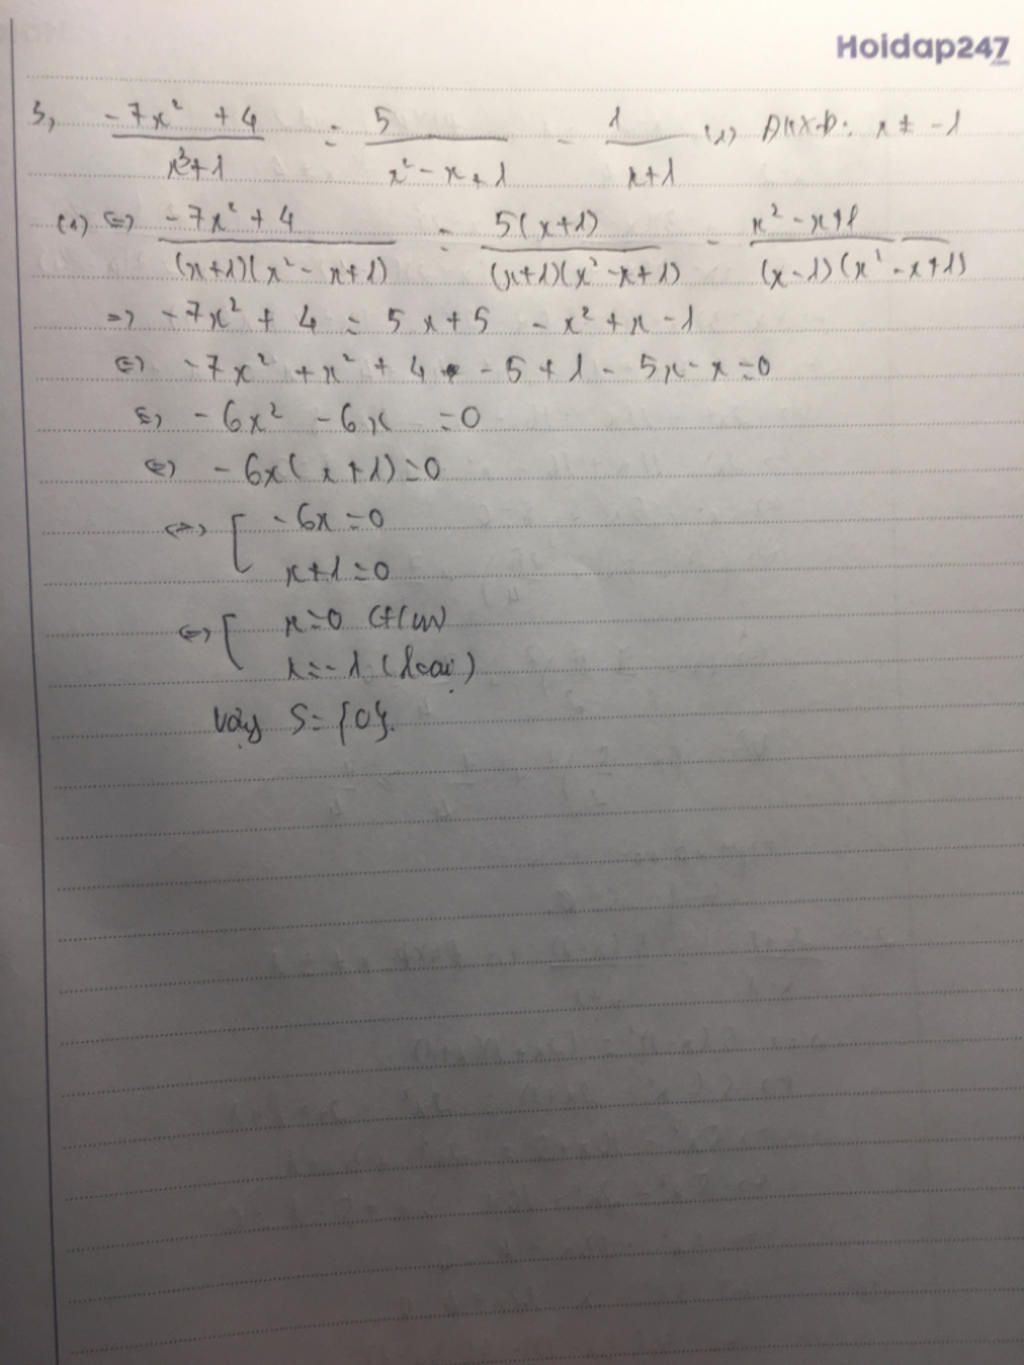 Hoidap247
.com
3, (-7x² + 4)/(x³+1) = 5/(x² - x + 1) - 1/(x+1) (1) ĐKXĐ: x ≠ -1
(1) <=> (-7x² + 4)/((x+1)(x² - x+1)) = 5(x+1)/((x+1)(x²-x+1)) - (x² - x+1)/((x-1)(x² - x+1))
=> -7x² + 4 = 5x+5 - x² + x - 1
<=> -7x² + x² + 4 - 5 + 1 - 5x - x = 0
<=> -6x² - 6x = 0
<=> -6x(x+1) = 0
<=> [ -6x = 0
x+1 = 0
<=> [ x = 0 (t/m)
x = -1 (loại)
Vậy S = {0}.